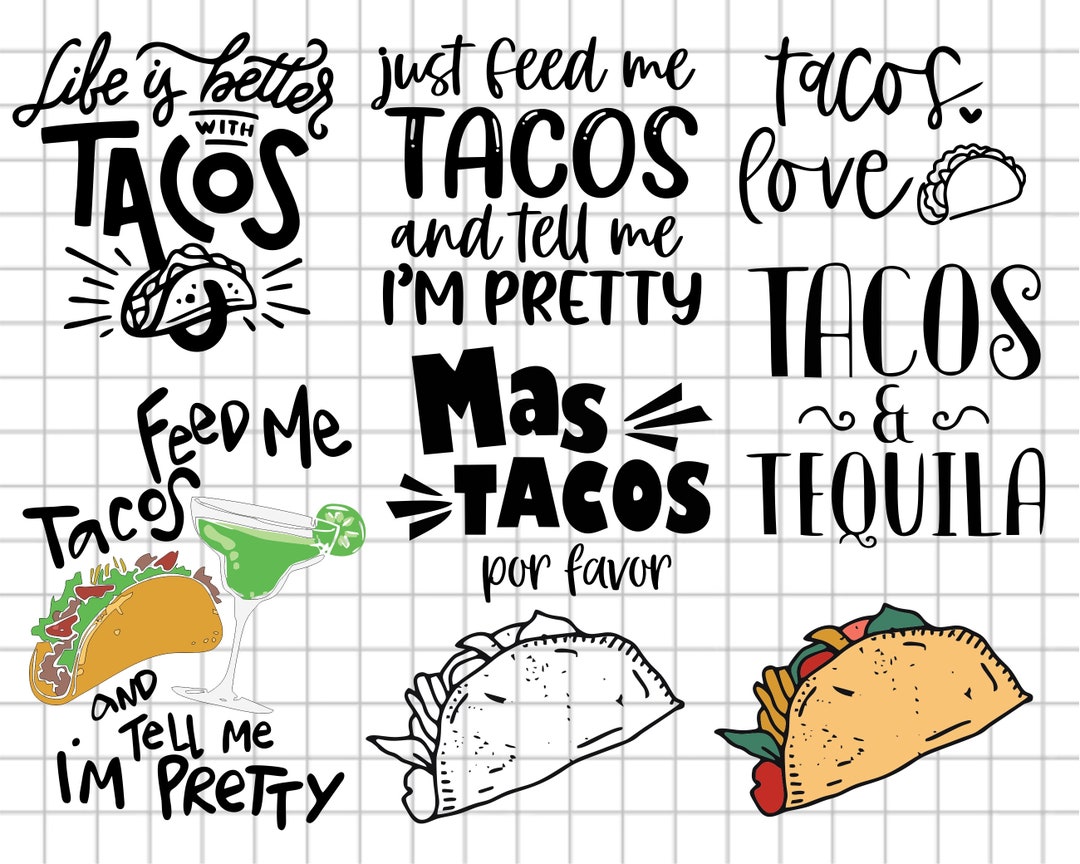 Life is better
WITH
TACOS
just feed me
TACOS
and tell me
I'M PRETTY
tacos
love
TACOS
&
TEQUILA
Mas
TACOS
por favor
Feed Me
Tacos
AND
Tell Me
i'm PReTTY